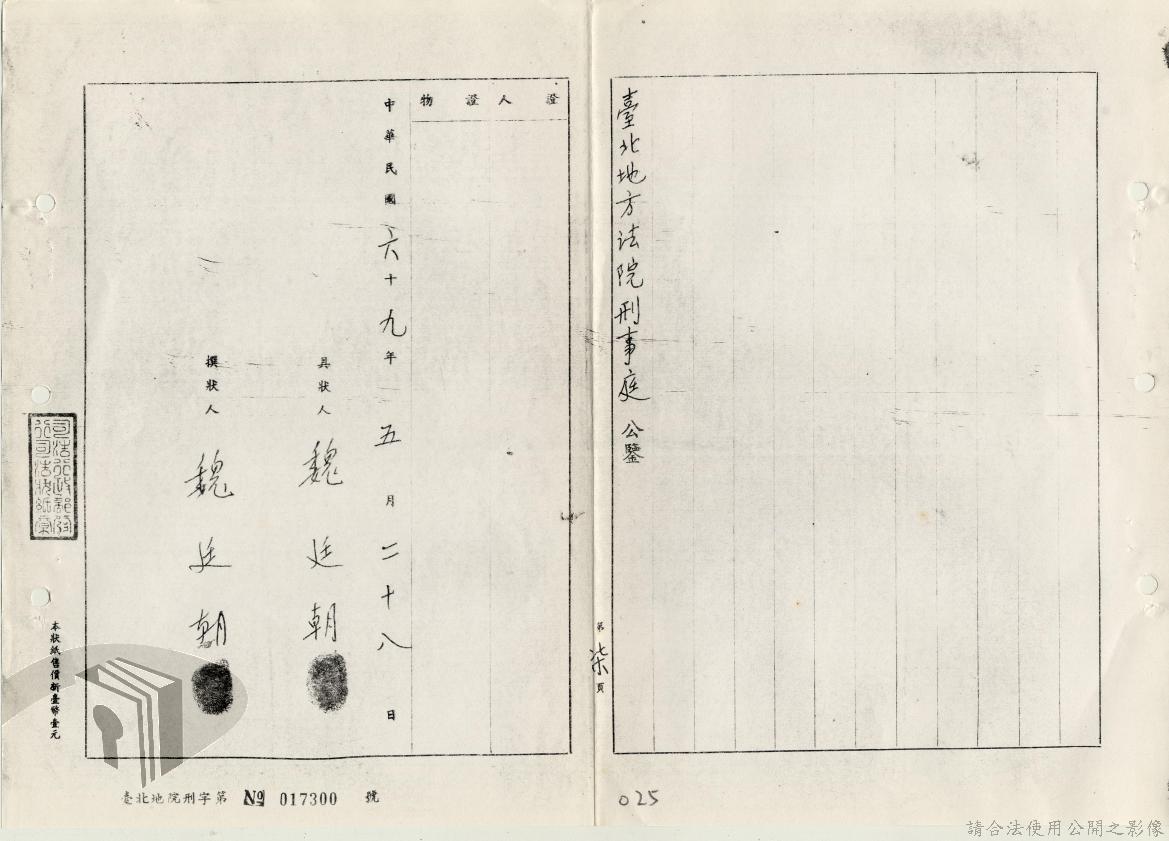 臺北地方法院刑事庭 公鑒
第柒頁
證人 證物
中華民國六十九年五月二十八日
具狀人 魏廷朝
撰狀人 魏廷朝
司法行政部發
行司法狀紙章
本狀紙售價新臺幣壹元
臺北地院刑字第 № 017300 號
025
請合法使用公開之影像